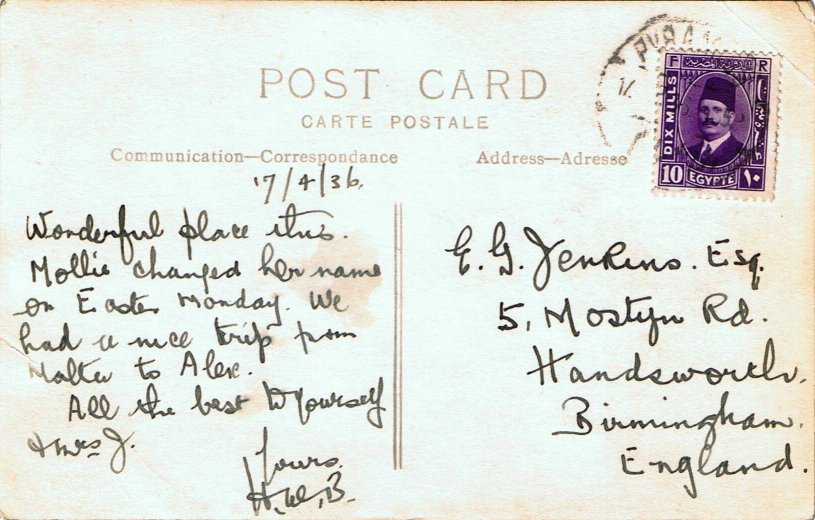 POST CARD
CARTE POSTALE
Communication—Correspondance
Address—Adresse
PYRA
F R
DIX MILLS
10 EGYPTE ١٠
17/4/36.
Wonderful place this.
Mollie changed her name
on Easter Monday. We
had a nice trip from
Malta to Alex.
All the best to Yourself
& Mrs J.
Yours
H.W.B.
E. G. Jenkins. Esq.
5, Mostyn Rd.
Handsworth.
Birmingham.
England.